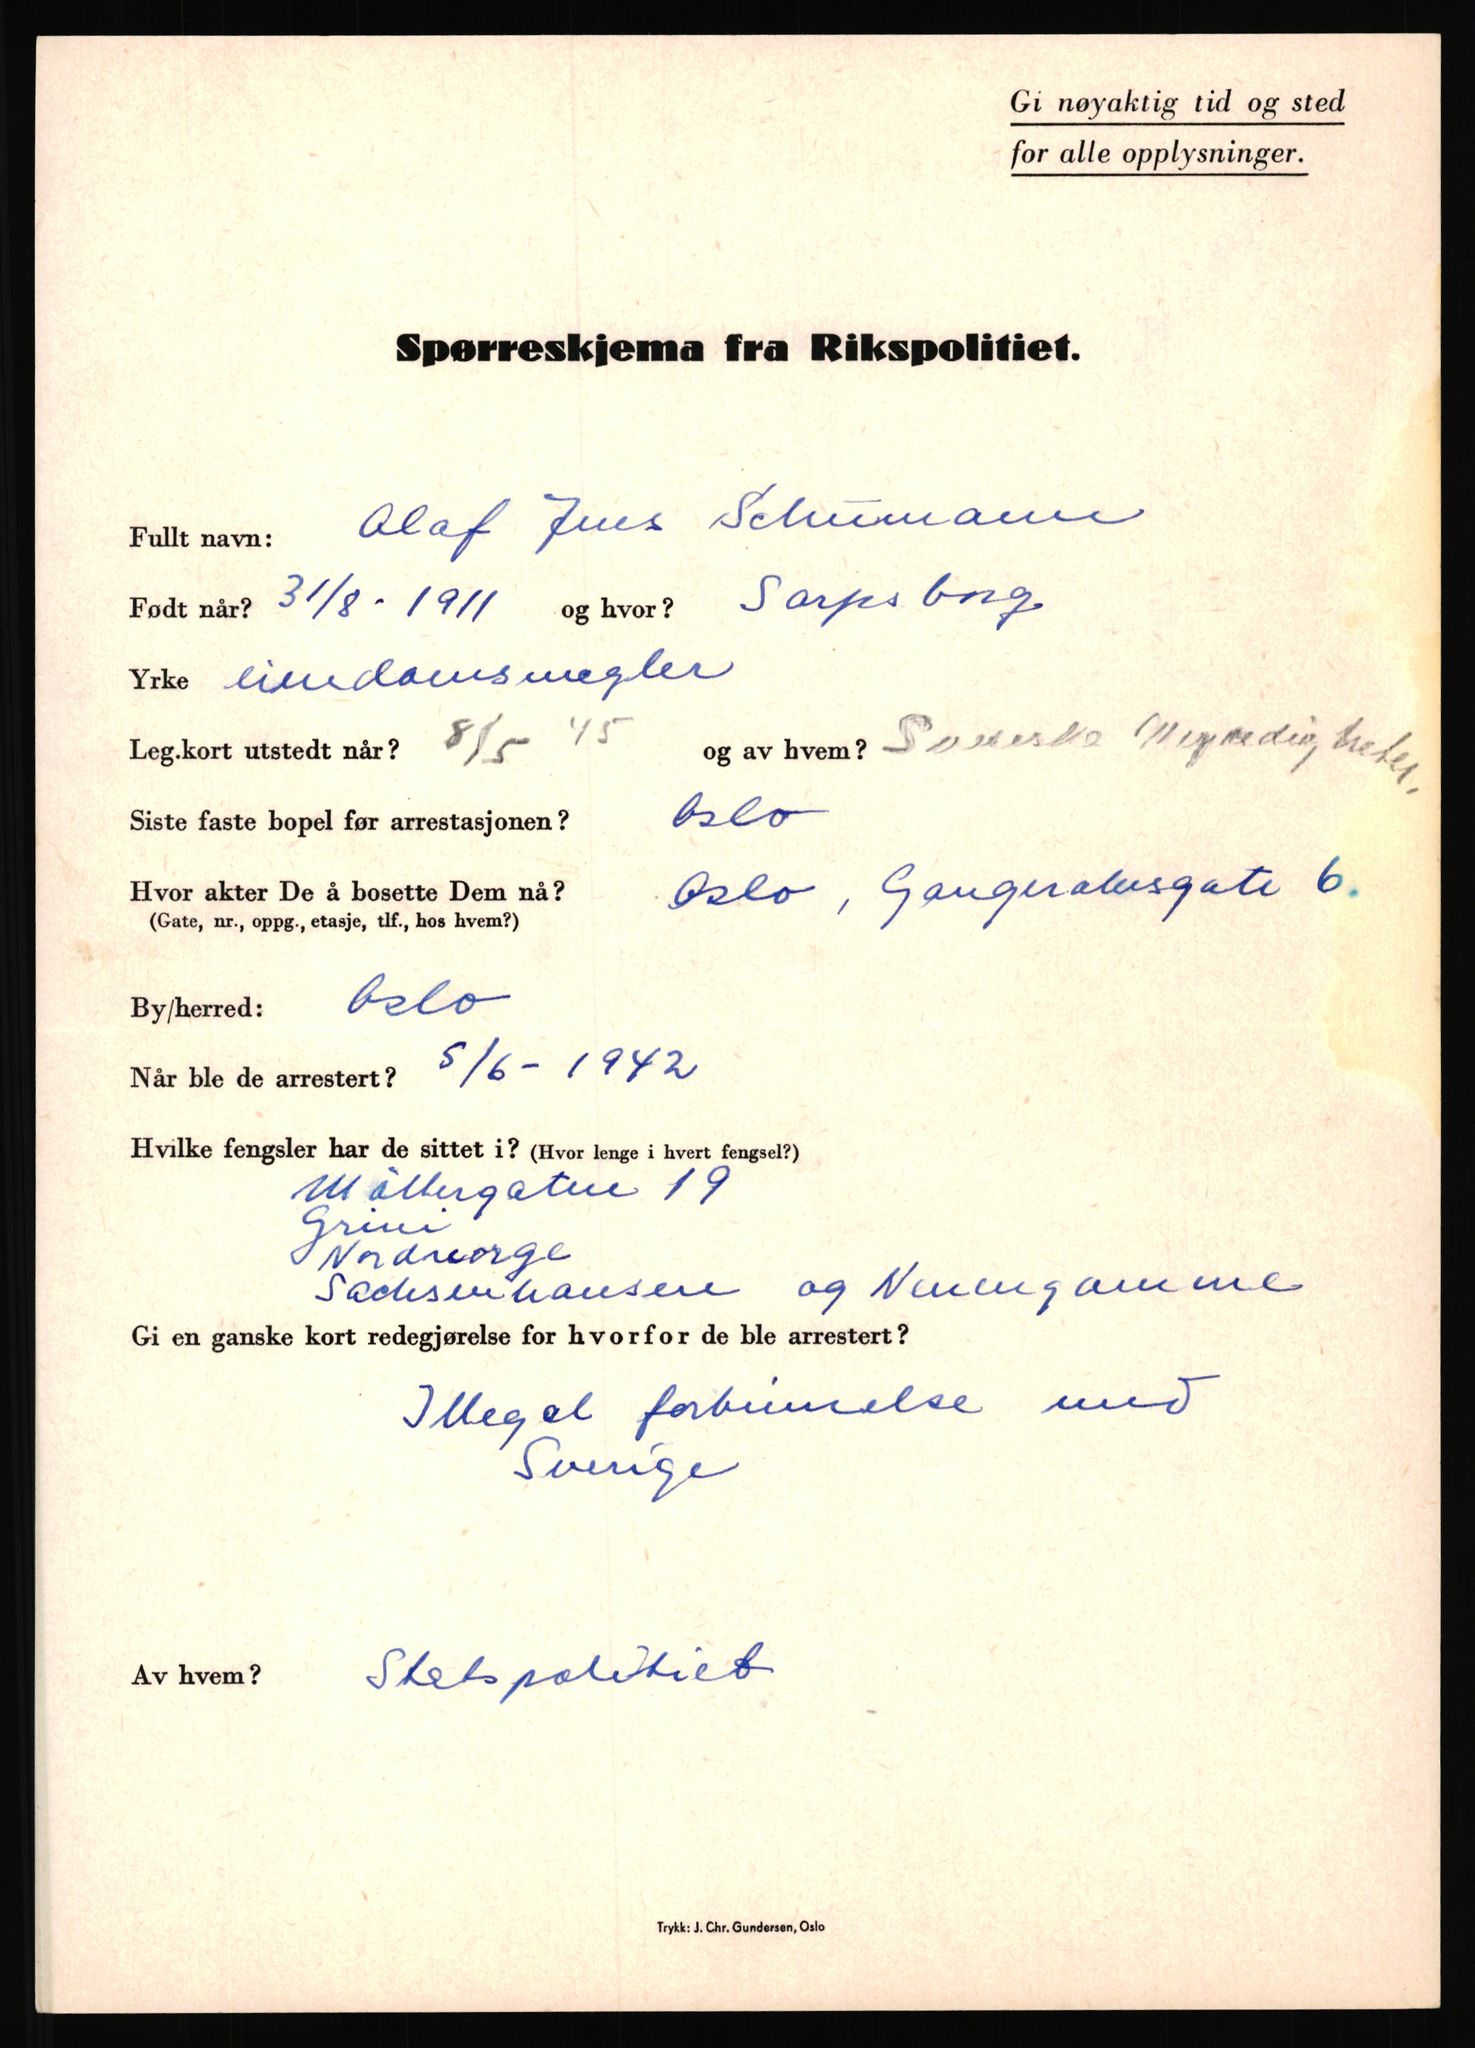 Gi nøyaktig tid og sted
for alle opplysninger.
Spørreskjema fra Rikspolitiet.
Fullt navn: Olaf Jens Schumann
Født når? 31/8 - 1911 og hvor? Sarpsborg
Yrke eiendomsmegler
Leg.kort utstedt når? 8/5 45 og av hvem? Svenske Myndigheter.
Siste faste bopel før arrestasjonen? Oslo
Hvor akter De å bosette Dem nå? Oslo, 6.
(Gate, nr., oppg., etasje, tlf., hos hvem?)
By/herred: Oslo
Når ble de arrestert? 5/6 - 1942
Hvilke fengsler har de sittet i? (Hvor lenge i hvert fengsel?)
Möllergaten 19
Grini
Nordnorge
Sachsenhausen og Neuengamme
Gi en ganske kort redegjørelse for hvorfor de ble arrestert?
Illegal forbinnelse med
Sverige
Av hvem? Statspolitiet
Trykk: J. Chr. Gundersen, Oslo